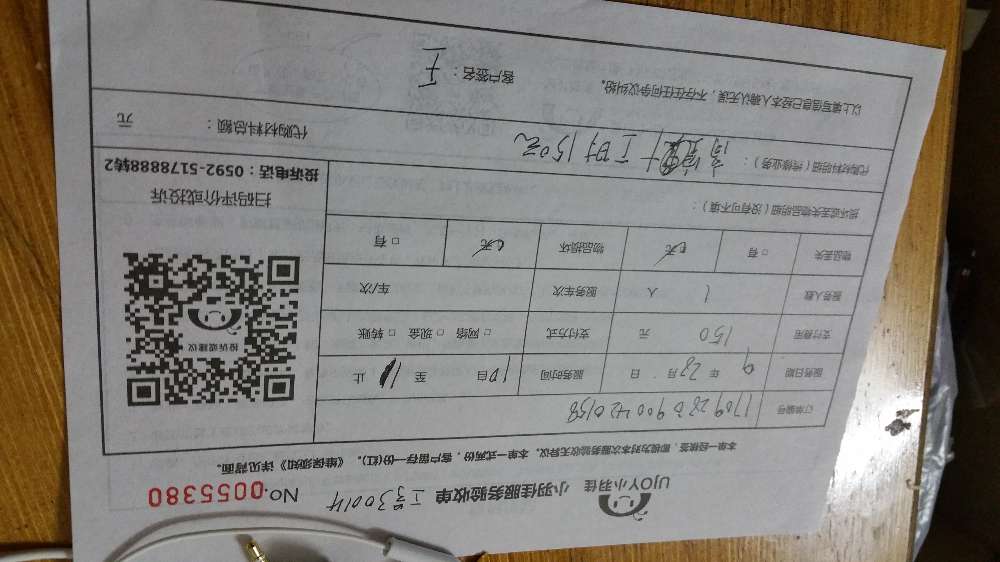 UJOY小羽佳 小羽佳服务验收单 工号30014 No. 0055380
本单一经核签，即视为对本次服务验收无异议。本单一式两份，客户留存一份(红)。《维保须知》详见背面。
订单编号
服务日期 9 年 28 月 日 服务时间 10 自 至 11 止
支付费用 150 元 支付方式 □ 网络 □ 现金 □ 转账
服务人数 1 人 服务车次 车/次
物品丢失 □ 有 □ 无 物品损坏 □ 有 □ 无
损坏或丢失物品明细（没有可不填）：
代购材料明细（维修业务）： 工时150元
代购材料总额： 元
以上填写信息已经本人确认无误，不存在任何争议纠纷。 客户签名： 王
投诉或建议
扫码评价或投诉
投诉电话：0592-5178888转2